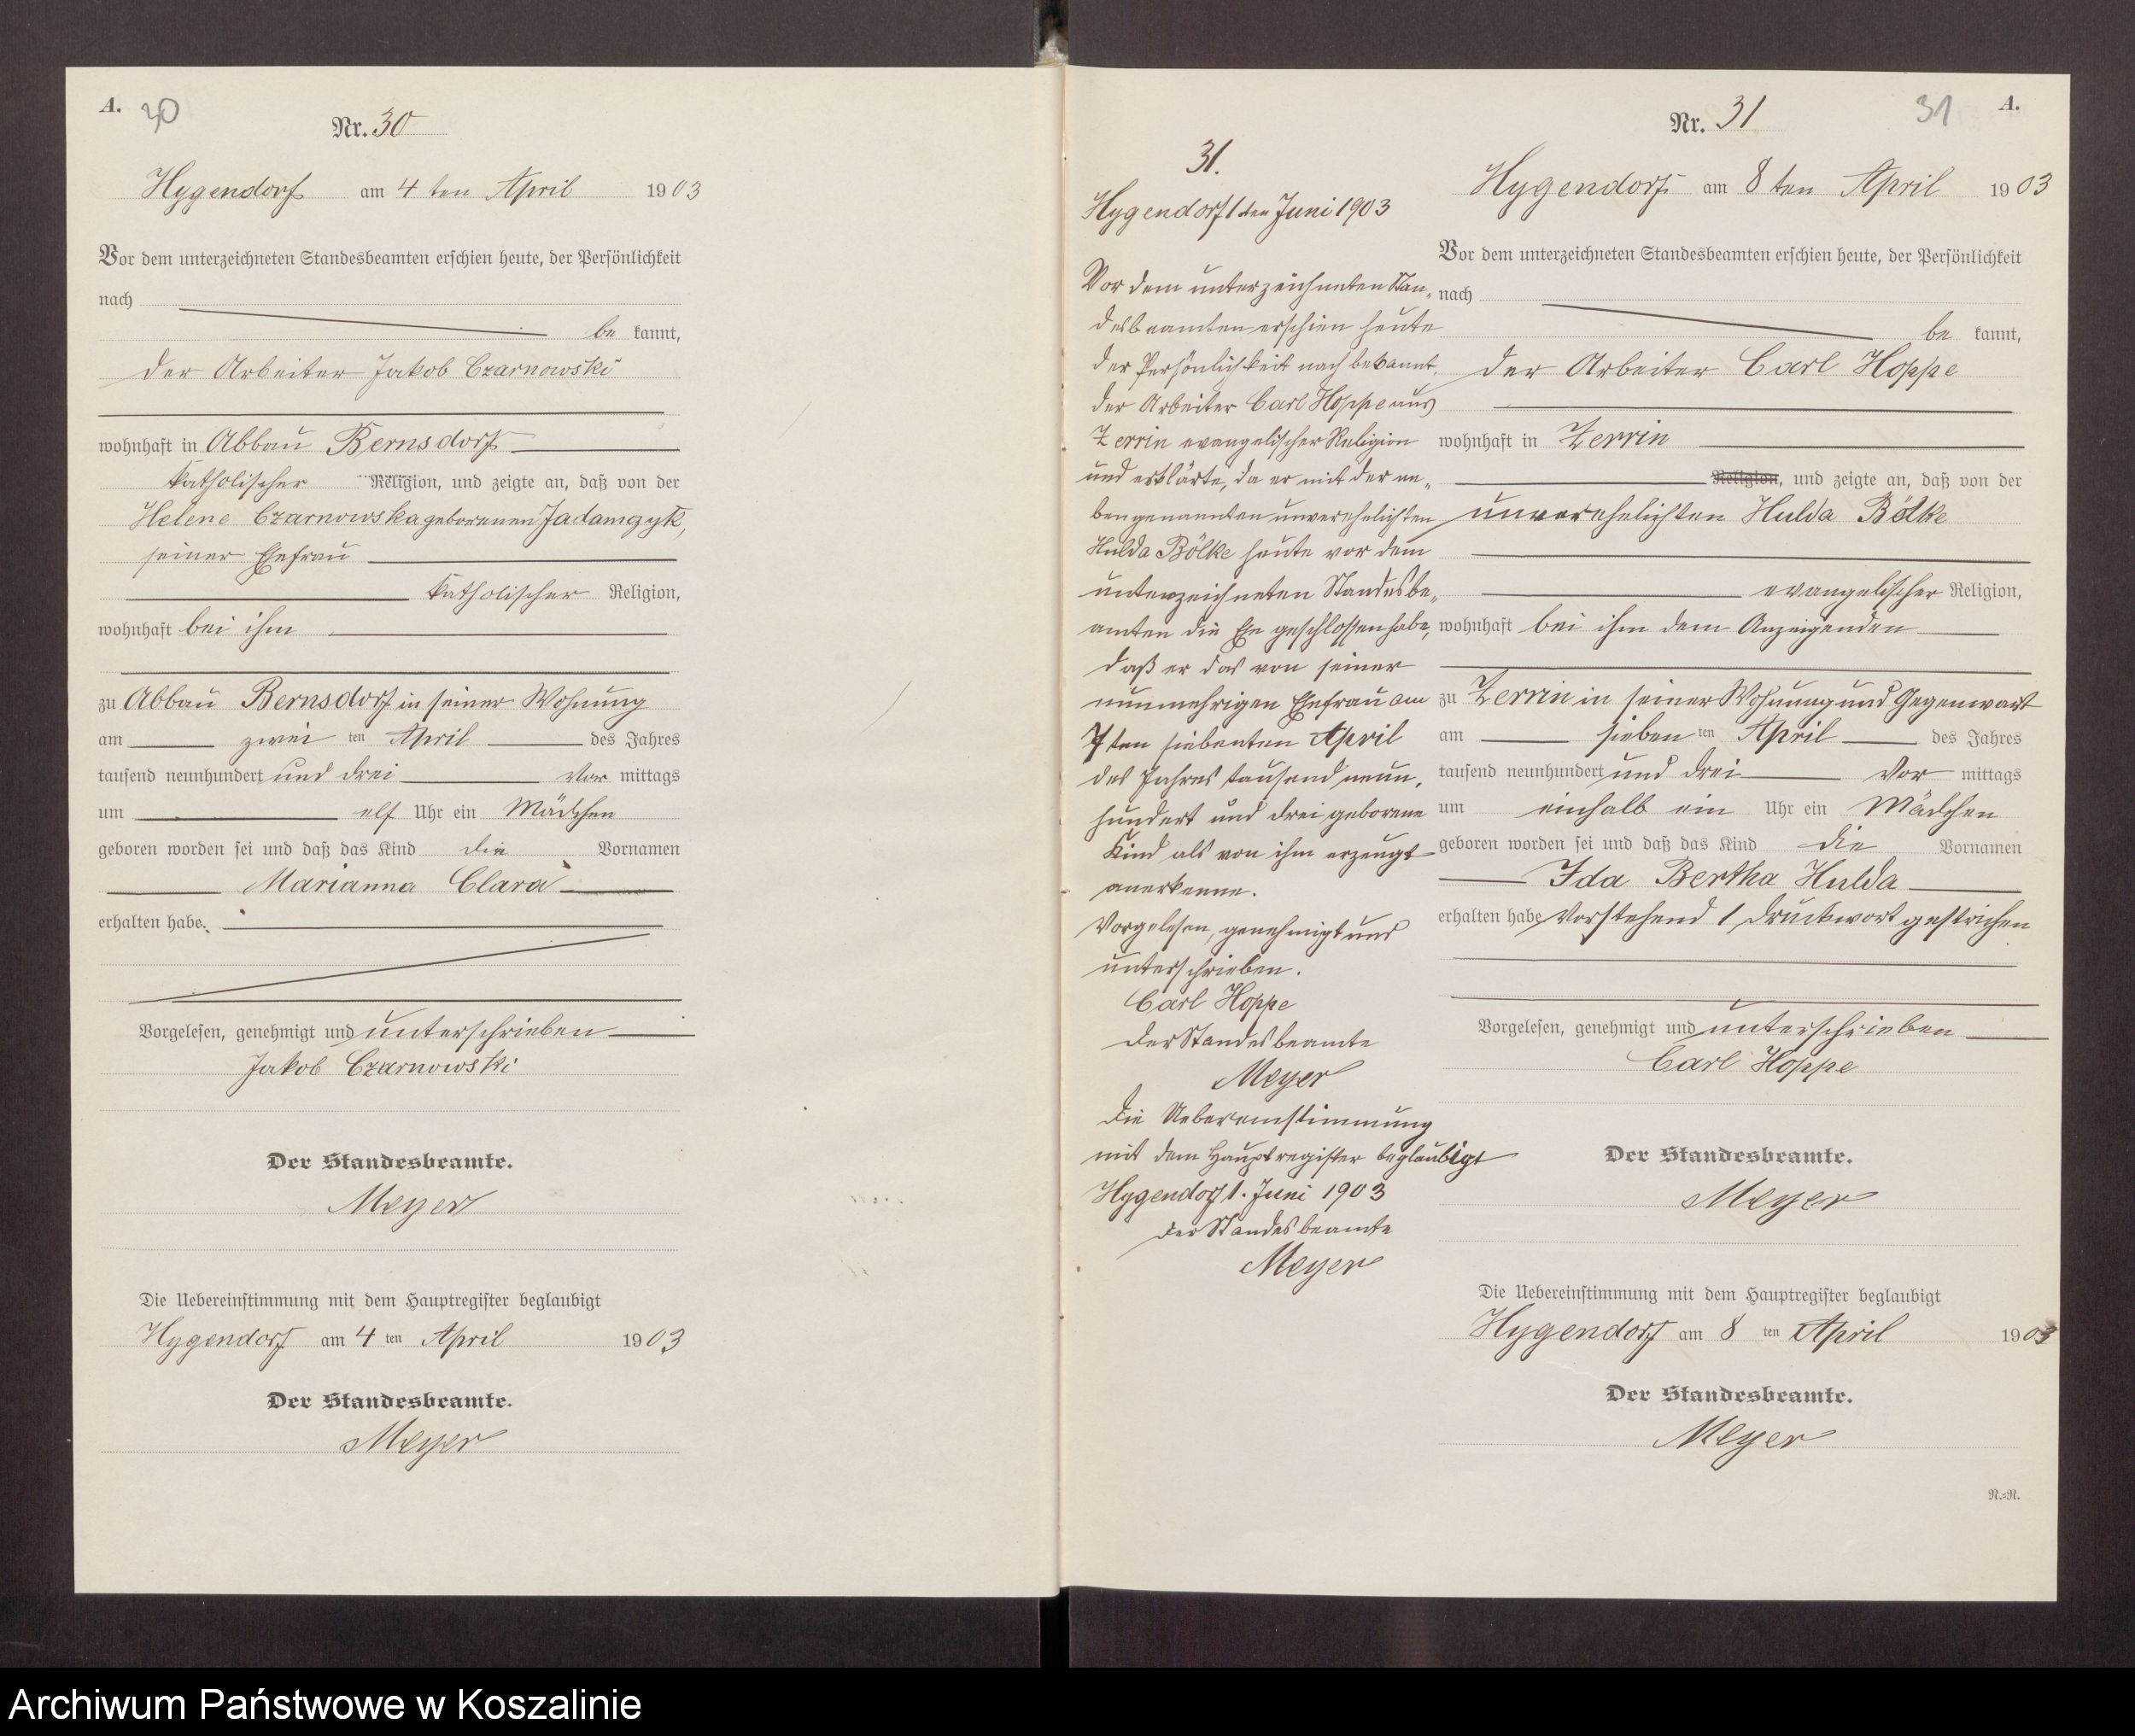 A. 30
Nr. 30
Hygendorf am 4 ten April 1903
Vor dem unterzeichneten Standesbeamten erschien heute, der Persönlichkeit
nach
be kannt,
der Arbeiter Jakob Czarnowski
wohnhaft in Abbau Bernsdorf
katholischer Religion, und zeigte an, daß von der
Helene Czarnowska geborenen Jadamgyk,
seiner Ehefrau
katholischer Religion,
wohnhaft bei ihm
zu Abbau Bernsdorf in seiner Wohnung
am zwei ten April des Jahres
tausend neunhundert und drei Vor mittags
um elf Uhr ein Mädchen
geboren worden sei und daß das Kind die Vornamen
Marianna Clara
erhalten habe.
Vorgelesen, genehmigt und unterschrieben
Jakob Czarnowski
Der Standesbeamte.
Meyer
Die Uebereinstimmung mit dem Hauptregister beglaubigt
Hygendorf am 4 ten April 1903
Der Standesbeamte.
Meyer
31.
Hygendorf 1 ten Juni 1903
Vor dem unterzeichneten Stan„
desbeamten erschien heute
der Persönlichkeit nach bekannt,
der Arbeiter Carl Hoppe aus
Zerrin evangelischer Religion
und erklärte, da er mit der ne„
bengenannten unverehelichten
Hulda Bölke heute vor dem
unterzeichneten Standesbe„
amten die Ehe geschlossen habe,
daß er das von seiner
nunmehrigen Ehefrau am
7ten siebenten April
des Jahres tausend neun„
hundert und drei geborene
Kind als von ihm erzeugt
anerkenne.
Vorgelesen, genehmigt und
unterschrieben.
Carl Hoppe
Der Standesbeamte
Meyer
Die Uebereinstimmung
mit dem Hauptregister beglaubigt
Hygendorf 1. Juni 1903
Der Standesbeamte
Meyer
31 A.
Nr. 31
Hygendorf am 8 ten April 1903
Vor dem unterzeichneten Standesbeamten erschien heute, der Persönlichkeit
nach
be kannt,
der Arbeiter Carl Hoppe
wohnhaft in Zerrin
Religion, und zeigte an, daß von der
unverehelichten Hulda Bölke
evangelischer Religion,
wohnhaft bei ihm dem Anzeigenden
zu Zerrin in seiner Wohnung und Gegenwart
am sieben ten April des Jahres
tausend neunhundert und drei Vor mittags
um einhalb ein Uhr ein Mädchen
geboren worden sei und daß das Kind die Vornamen
Ida Bertha Hulda
erhalten habe Vorstehend 1 Druckwort gestrichen
Vorgelesen, genehmigt und unterschrieben
Carl Hoppe
Der Standesbeamte.
Meyer
Die Uebereinstimmung mit dem Hauptregister beglaubigt
Hygendorf am 8 ten April 1903
Der Standesbeamte.
Meyer
N.=N.
Archiwum Państwowe w Koszalinie